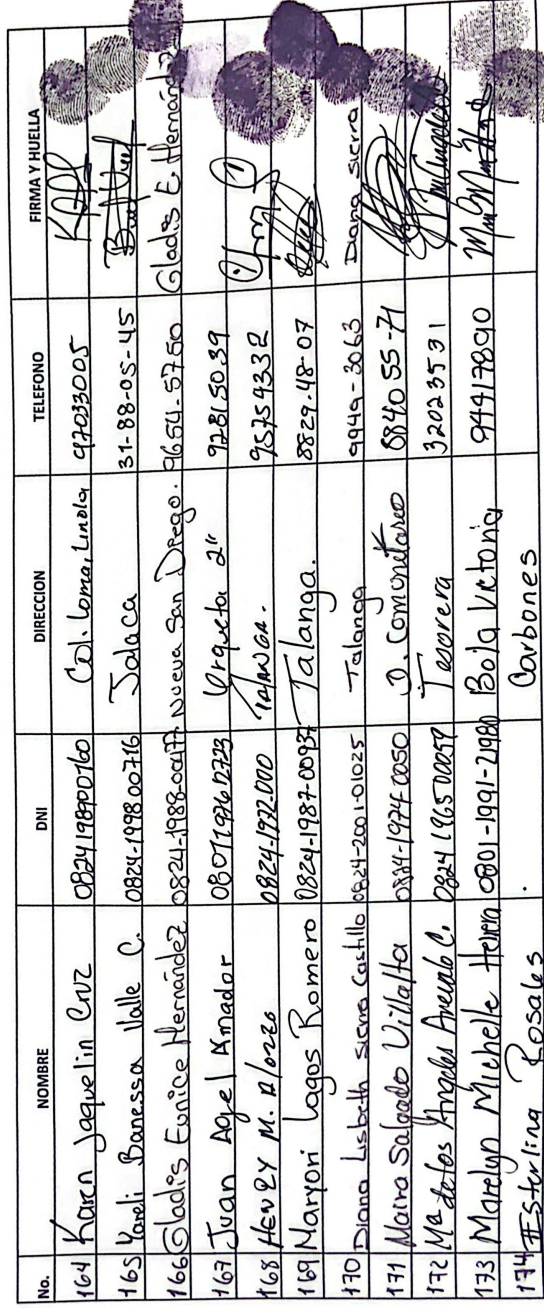 No. NOMBRE DNI DIRECCION TELEFONO FIRMA Y HUELLA
164 Karen Jaquelin Cruz 0824198900760 Col. Loma, Linda 97033005
165 Yareli Banessa Valle C. 0824-1998 00716 Jalaca 31-88-05-45
166 Gladis Eunice Hernández 0824-1988-00477 Nueva San Diego. 9654-5750 Gladis E. Hernández
167 Juan Angel Amador 0801 1976 02723 Orqueta 2" 92815039
168 HENRY M. Alonzo 0824-1972-000 TALANGA. 95754332
169 Maryori Lagos Romero 0824-1987-00937 Talanga. 8829-48-07
170 Diana Lisbeth Sierra Castillo 0824-2001-01025 Talanga 9949-3063 Diana Sierra
171 Maira Salgado Villalta 0824-1974-0050 D. Comunitareo 8840 55-71
172 Mª de los Angeles Arevalo C. 0824 1965 00059 Tesorera 32023531
173 Marelyn Michelle 0801-1991-21980 Victoria 94417890
174 Esterlina Rosales . Carbones